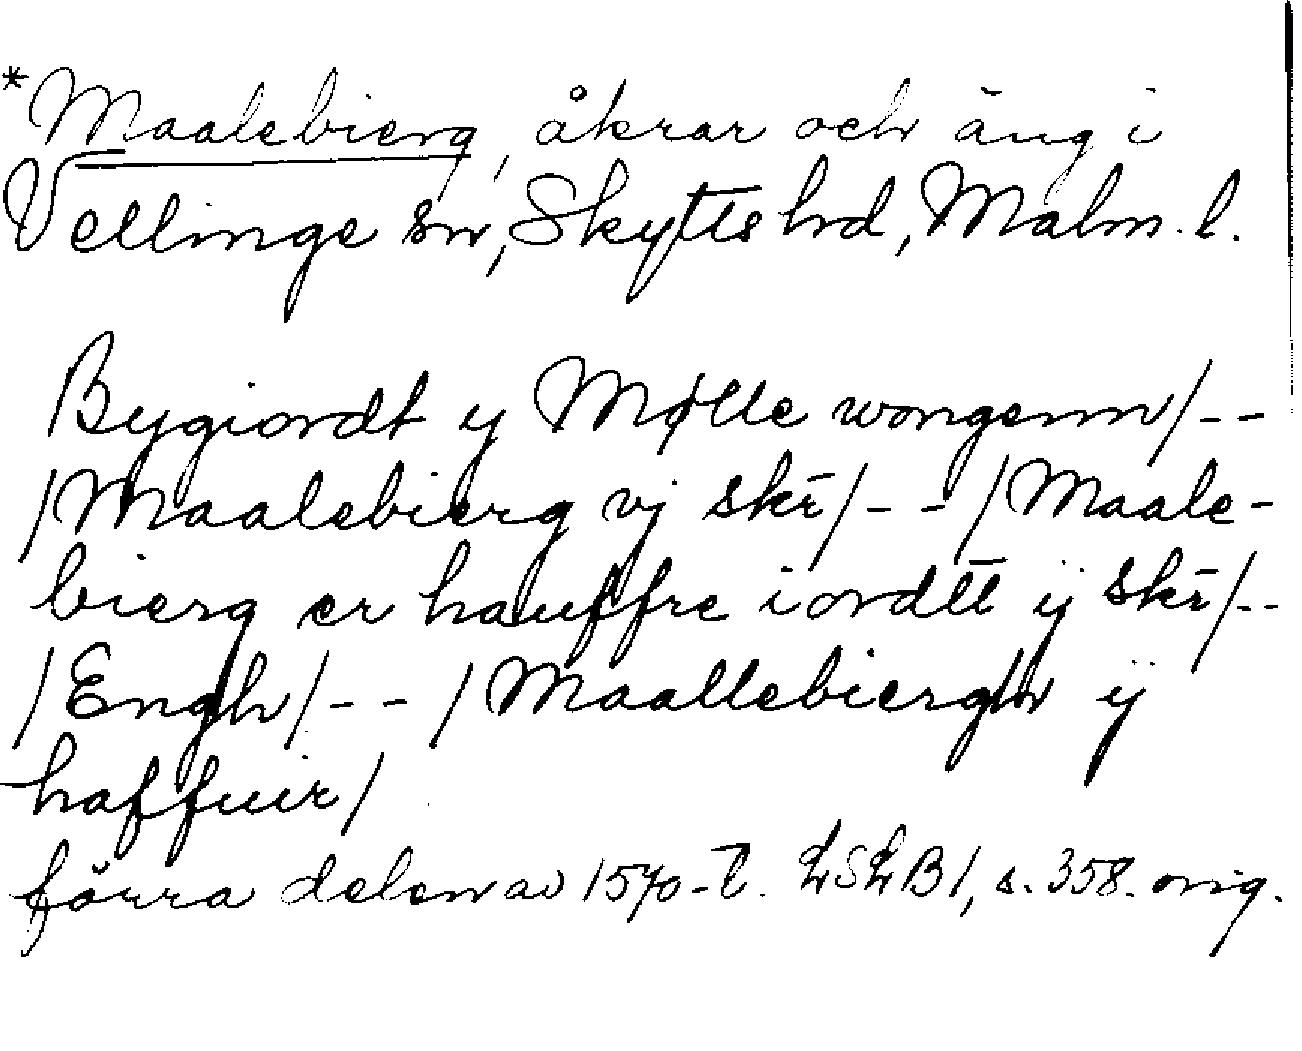 *Maalebierg, åkrar och äng i
Vellinge sn, Skytts hd, Malm. l.
Bygiordt y Mølle wongenn/--
/Maalebierg vj skr̄/--/Maale-
bierg er hauffre iordtt ij skr̄/--
/Engh/--/Maallebiergh ij
haffuir/
förra delen av 1570-t. LSLB 1, s. 358. orig.